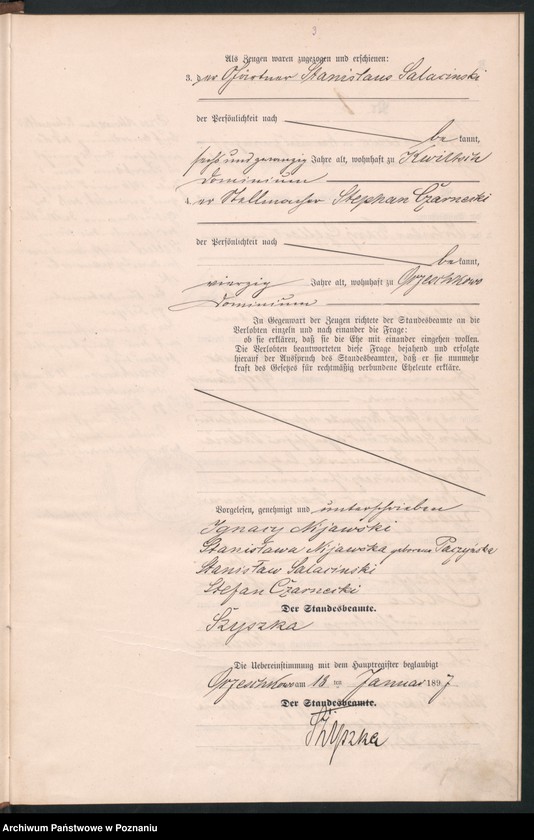 3
Als Zeugen waren zugezogen und erschienen:
3. der Gärtner Stanislaus Salacinski
der Persönlichkeit nach
be kannt,
sechs und zwanzig Jahre alt, wohnhaft zu Kwiltsch
Dominium
4. der Stellmacher Stephan Czarnecki
der Persönlichkeit nach
be kannt,
vierzig Jahre alt, wohnhaft zu Orzeschkowo
Dominium
In Gegenwart der Zeugen richtete der Standesbeamte an die
Verlobten einzeln und nach einander die Frage:
ob sie erklären, daß sie die Ehe mit einander eingehen wollen.
Die Verlobten beantworteten diese Frage bejahend und erfolgte
hierauf der Ausspruch des Standesbeamten, daß er sie nunmehr
kraft des Gesetzes für rechtmäßig verbundene Eheleute erkläre.
Vorgelesen, genehmigt und unterschrieben
Ignacy Nijawski
Stanisława Nijawska geborene Paczyńska
Stanisław Salacinski
Stefan Czarnecki
Der Standesbeamte.
Szyszka
Die Uebereinstimmung mit dem Hauptregister beglaubigt
Orzeschkowo am 18 ten Januar 1897
Der Standesbeamte.
Szyszka
Archiwum Państwowe w Poznaniu